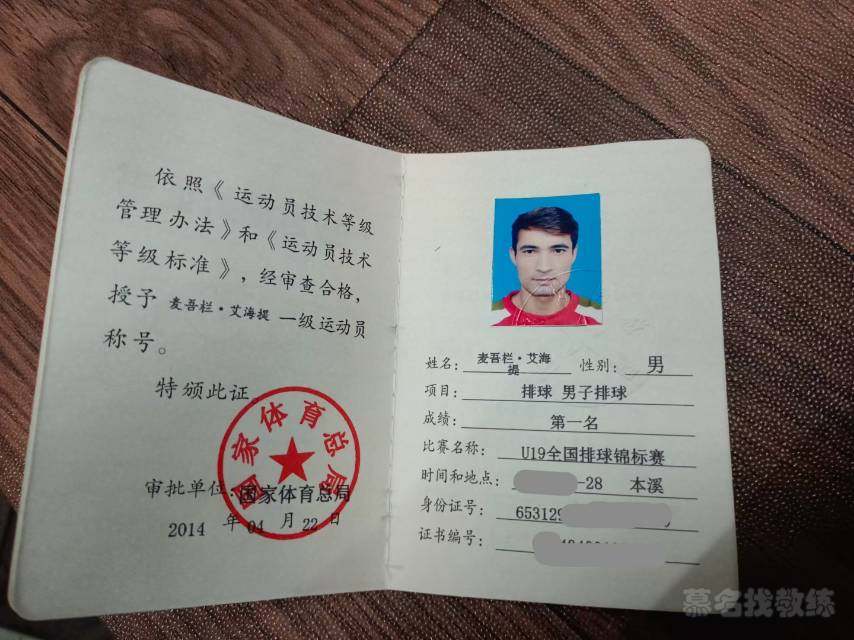 依照《运动员技术等级
管理办法》和《运动员技术
等级标准》，经审查合格，
授予 麦吾栏·艾海提 一级运动员
称号。
特颁此证。
国家体育总局
审批单位:国家体育总局
2014 年 04 月 22 日
姓名: 麦吾栏·艾海
提 性别: 男
项目: 排球 男子排球
成绩: 第一名
比赛名称: U19全国排球锦标赛
时间和地点: -28 本溪
身份证号: 653129
证书编号:
慕名找教练